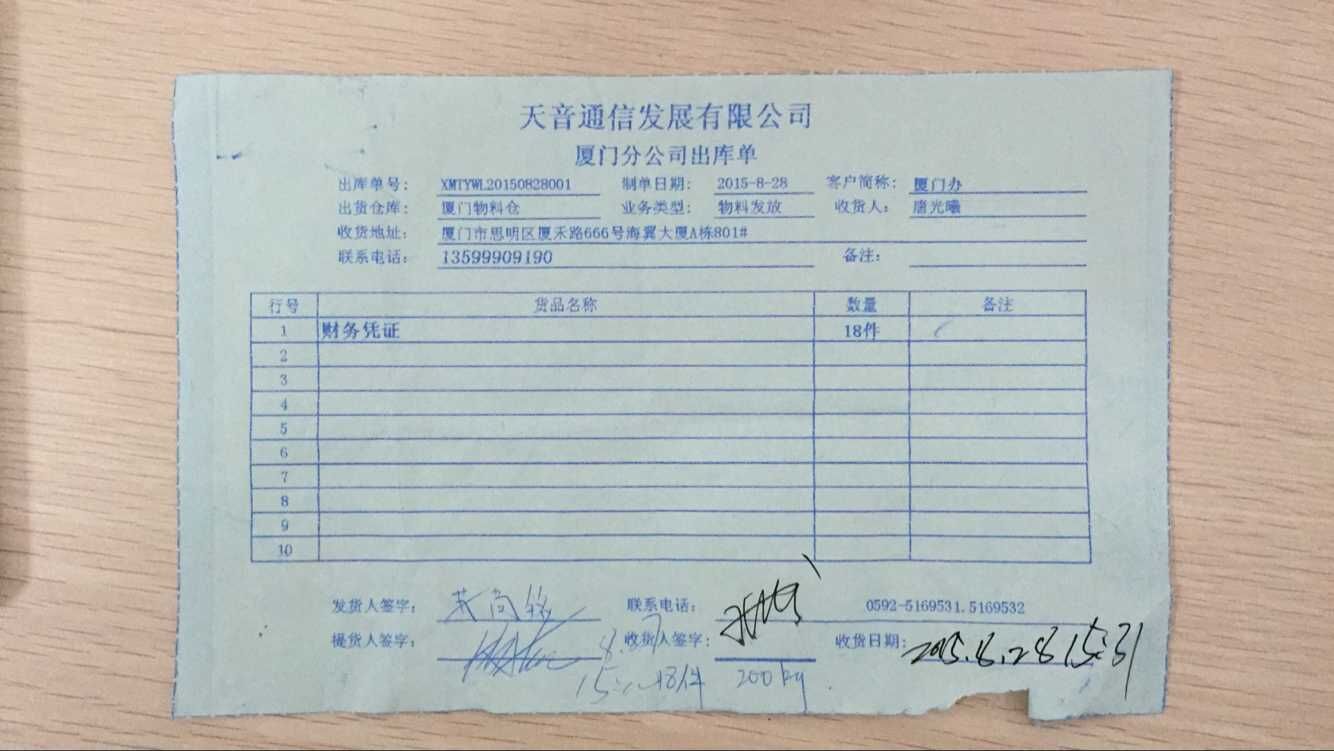 天音通信发展有限公司
厦门分公司出库单
出库单号: XMTYWL20150828001 制单日期: 2015-8-28 客户简称: 厦门办
出货仓库: 厦门物料仓 业务类型: 物料发放 收货人: 唐光曦
收货地址: 厦门市思明区厦禾路666号海翼大厦A栋801#
联系电话: 13599909190 备注:
行号 货品名称 数量 备注
1 财务凭证 18件
2
3
4
5
6
7
8
9
10
发货人签字: 联系电话: 0592-5169531.5169532
提货人签字: 收货人签字: 收货日期: 2015.8.28 15:31
18件 200kg